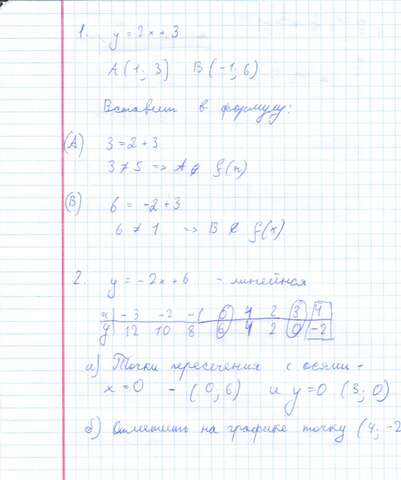 1. y = 2x + 3
A (1; 3) B (-1; 6)
Вставить в формулу:
(A) 3 = 2 + 3
3 ≠ 5 => A ∉ f(x)
(B) 6 = -2 + 3
6 ≠ 1 => B ∉ f(x)
2. y = -2x + 6 - линейная
x -3 -2 -1 0 1 2 3 4
y 12 10 8 6 4 2 0 -2
а) Точки пересечения с осями -
x = 0 - (0, 6) и y = 0 (3; 0)
б) Отметить на графике точку (4; -2